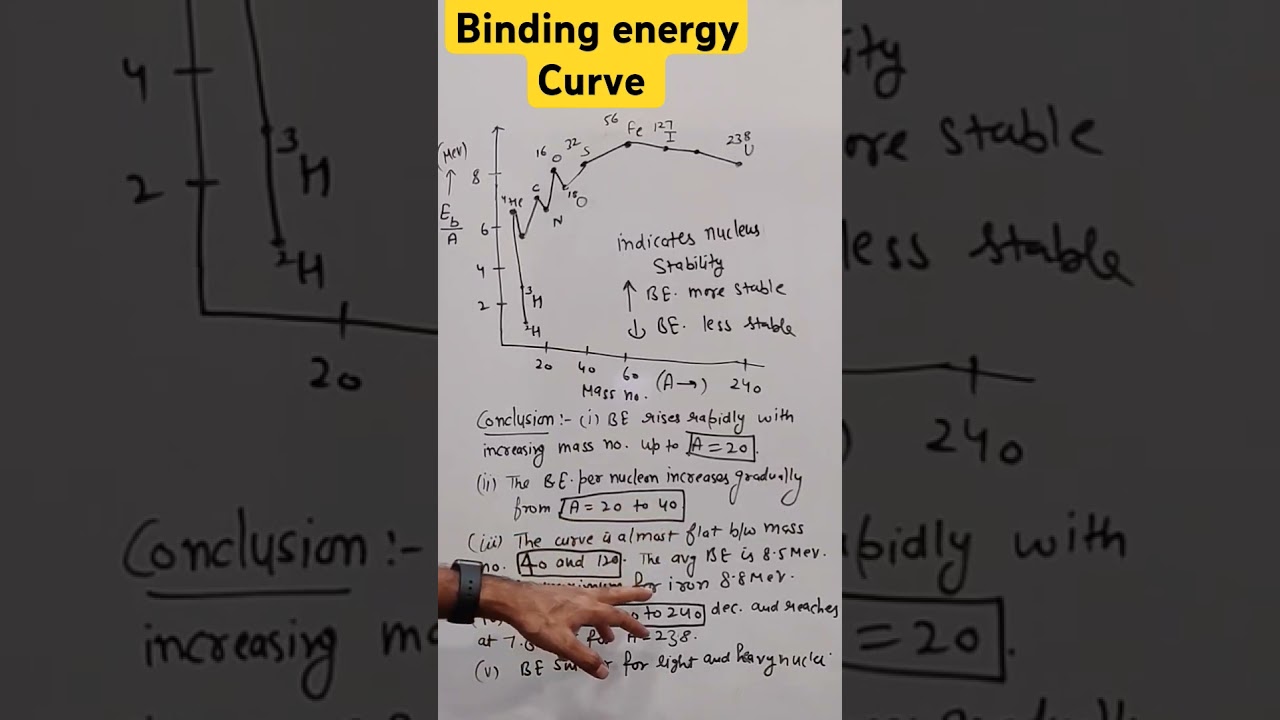 Binding energy
Curve
(MeV)
E_b
A
8
6
4
2
⁴He
C
N
¹⁶O
¹⁸O
³²S
⁵⁶Fe
¹²⁷I
²³⁸U
³H
²H
indicates nucleus
Stability
↑ BE. more stable
↓ BE. less stable
20 40 60 240
Mass no. (A→)
Conclusion:- (i) BE rises rapidly with
increasing mass no. up to A=20.
(ii) The B.E. per nucleon increases gradually
from A = 20 to 40
(iii) The curve is almost flat b/w mass
no. 40 and 120. The avg BE is 8.5 MeV.
for iron 8.8 MeV.
to 240 dec. and reaches
at for A=238.
(v) BE for light and heavy nuclei.
4
2
³H
²H
20
Conclusion:-
increasing
ity
ore stable
less stable
240
pidly with
=20.